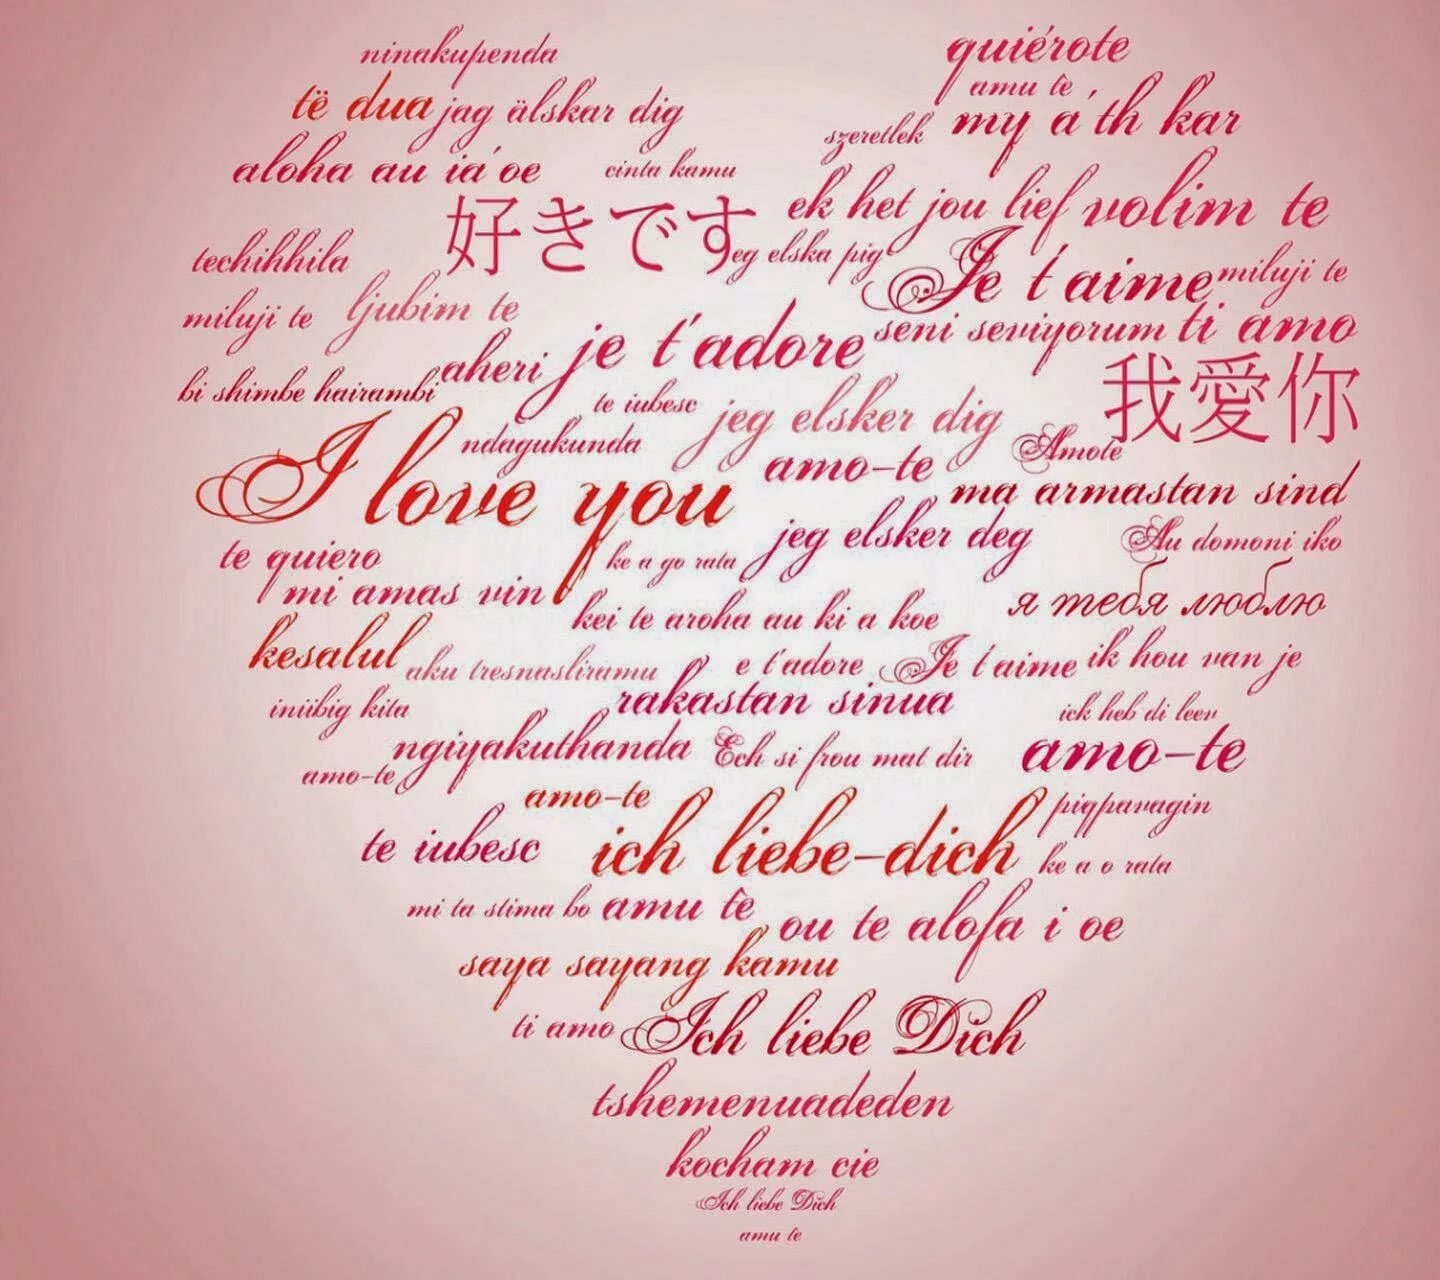 ninakupenda quiérote
amu te
të dua jag älskar dig my a'th kar
szeretlek
aloha au ia'oe cinta kamu
ek het jou lief volim te
好きです
techihhila eg elska pig Je t'aime miluji te
miluji te ljubim te
je t'adore seni seviyorum ti amo
aheri
bi shimbe hairambi te iubesc jeg elsker dig 我愛你
ndagukunda Amote
I love you amo-te ma armastan sind
jeg elsker deg Au domoni iko
te quiero ke a go rata
mi amas vin я тебя люблю
kei te aroha au ki a koe
kesalul aku tresnasliramu e t'adore Je t'aime ik hou van je
iniibig kita rakastan sinua ick heb di leev
ngiyakuthanda Ech si frou mat dir amo-te
amo-te
amo-te piqpavagin
te iubesc ich liebe-dich ke a o rata
mi ta stima bo amu te ou te alofa i oe
saya sayang kamu
ti amo Ich liebe Dich
tshemenuadeden
kocham cie
Ich liebe Dich
amu te